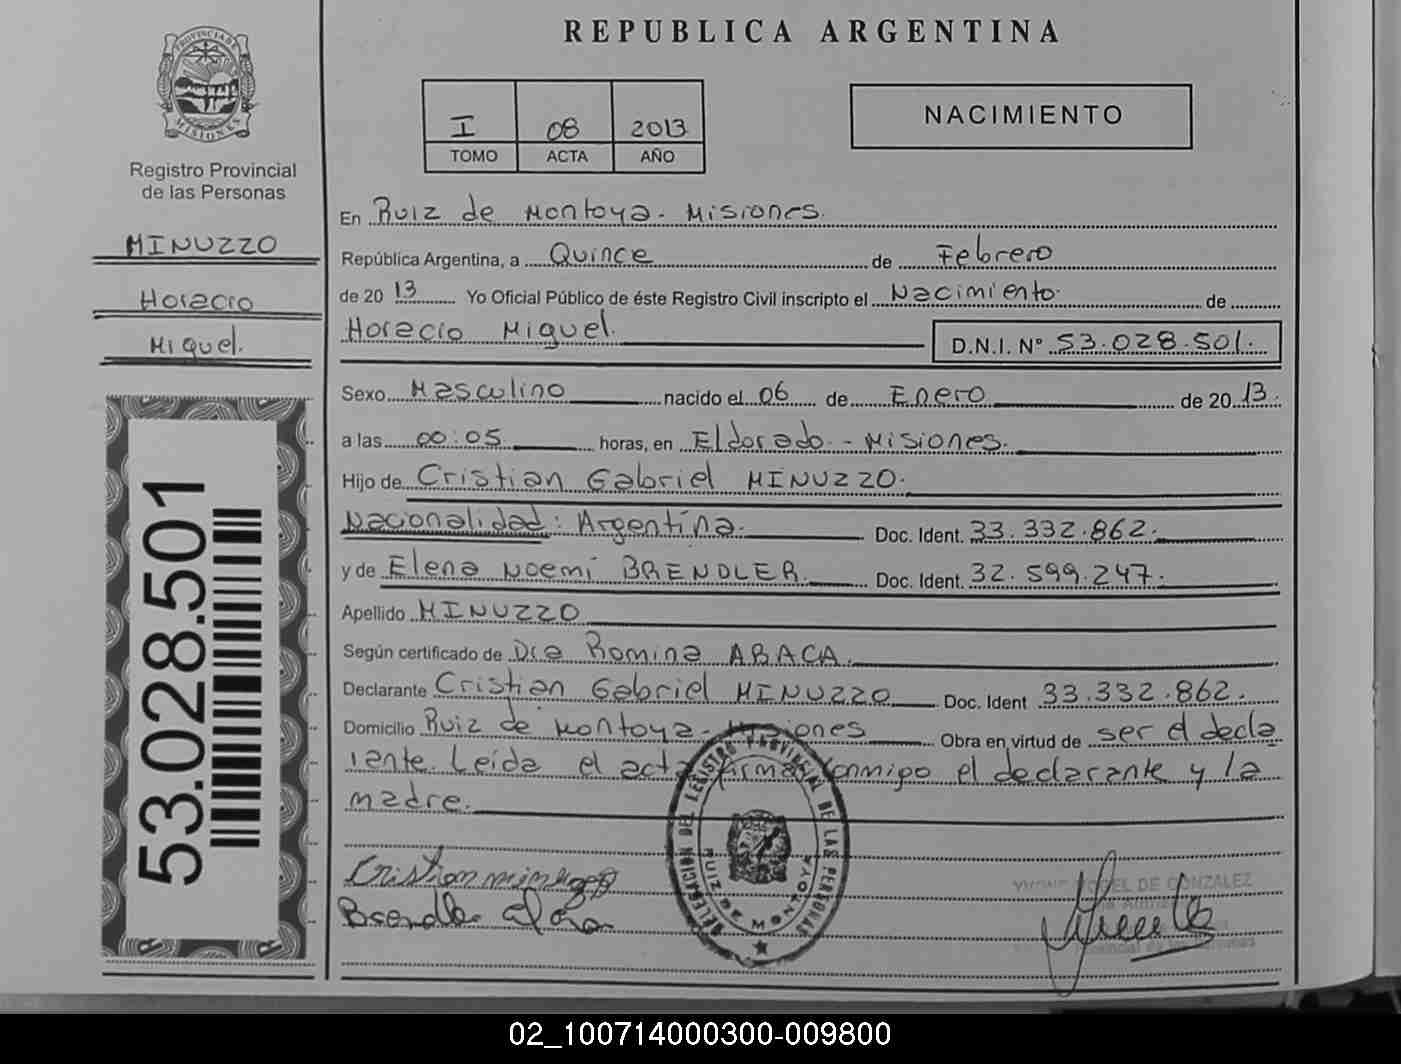 REPUBLICA ARGENTINA
PROVINCIA DE MISIONES
Registro Provincial
de las Personas
MINUZZO
Horacio
Miguel.
53.028.501
I 08 2013
TOMO ACTA AÑO
NACIMIENTO
En Ruiz de Montoya - Misiones.
República Argentina, a Quince de Febrero
de 2013 Yo Oficial Público de éste Registro Civil inscripto el Nacimiento de
Horacio Miguel. D.N.I. N° 53.028.501.
Sexo Masculino nacido el 06 de Enero de 2013.
a las 00:05 horas, en Eldorado - Misiones.
Hijo de Cristian Gabriel MINUZZO.
Nacionalidad: Argentina. Doc. Ident. 33.332.862.
y de Elena Noemi BRENDLER. Doc. Ident. 32.599.247.
Apellido MINUZZO
Según certificado de Dra Romina ABACA.
Declarante Cristian Gabriel MINUZZO Doc. Ident 33.332.862.
Domicilio Ruiz de Montoya - Misiones Obra en virtud de ser el decla
rante. Leída el acta firman conmigo el declarante y la
madre.
DELEGACION DEL REGISTRO PROVINCIAL DE LAS PERSONAS
RUIZ DE MONTOYA
Cristian minuzzo
Brendler Elena
DE GONZALEZ
02_100714000300-009800